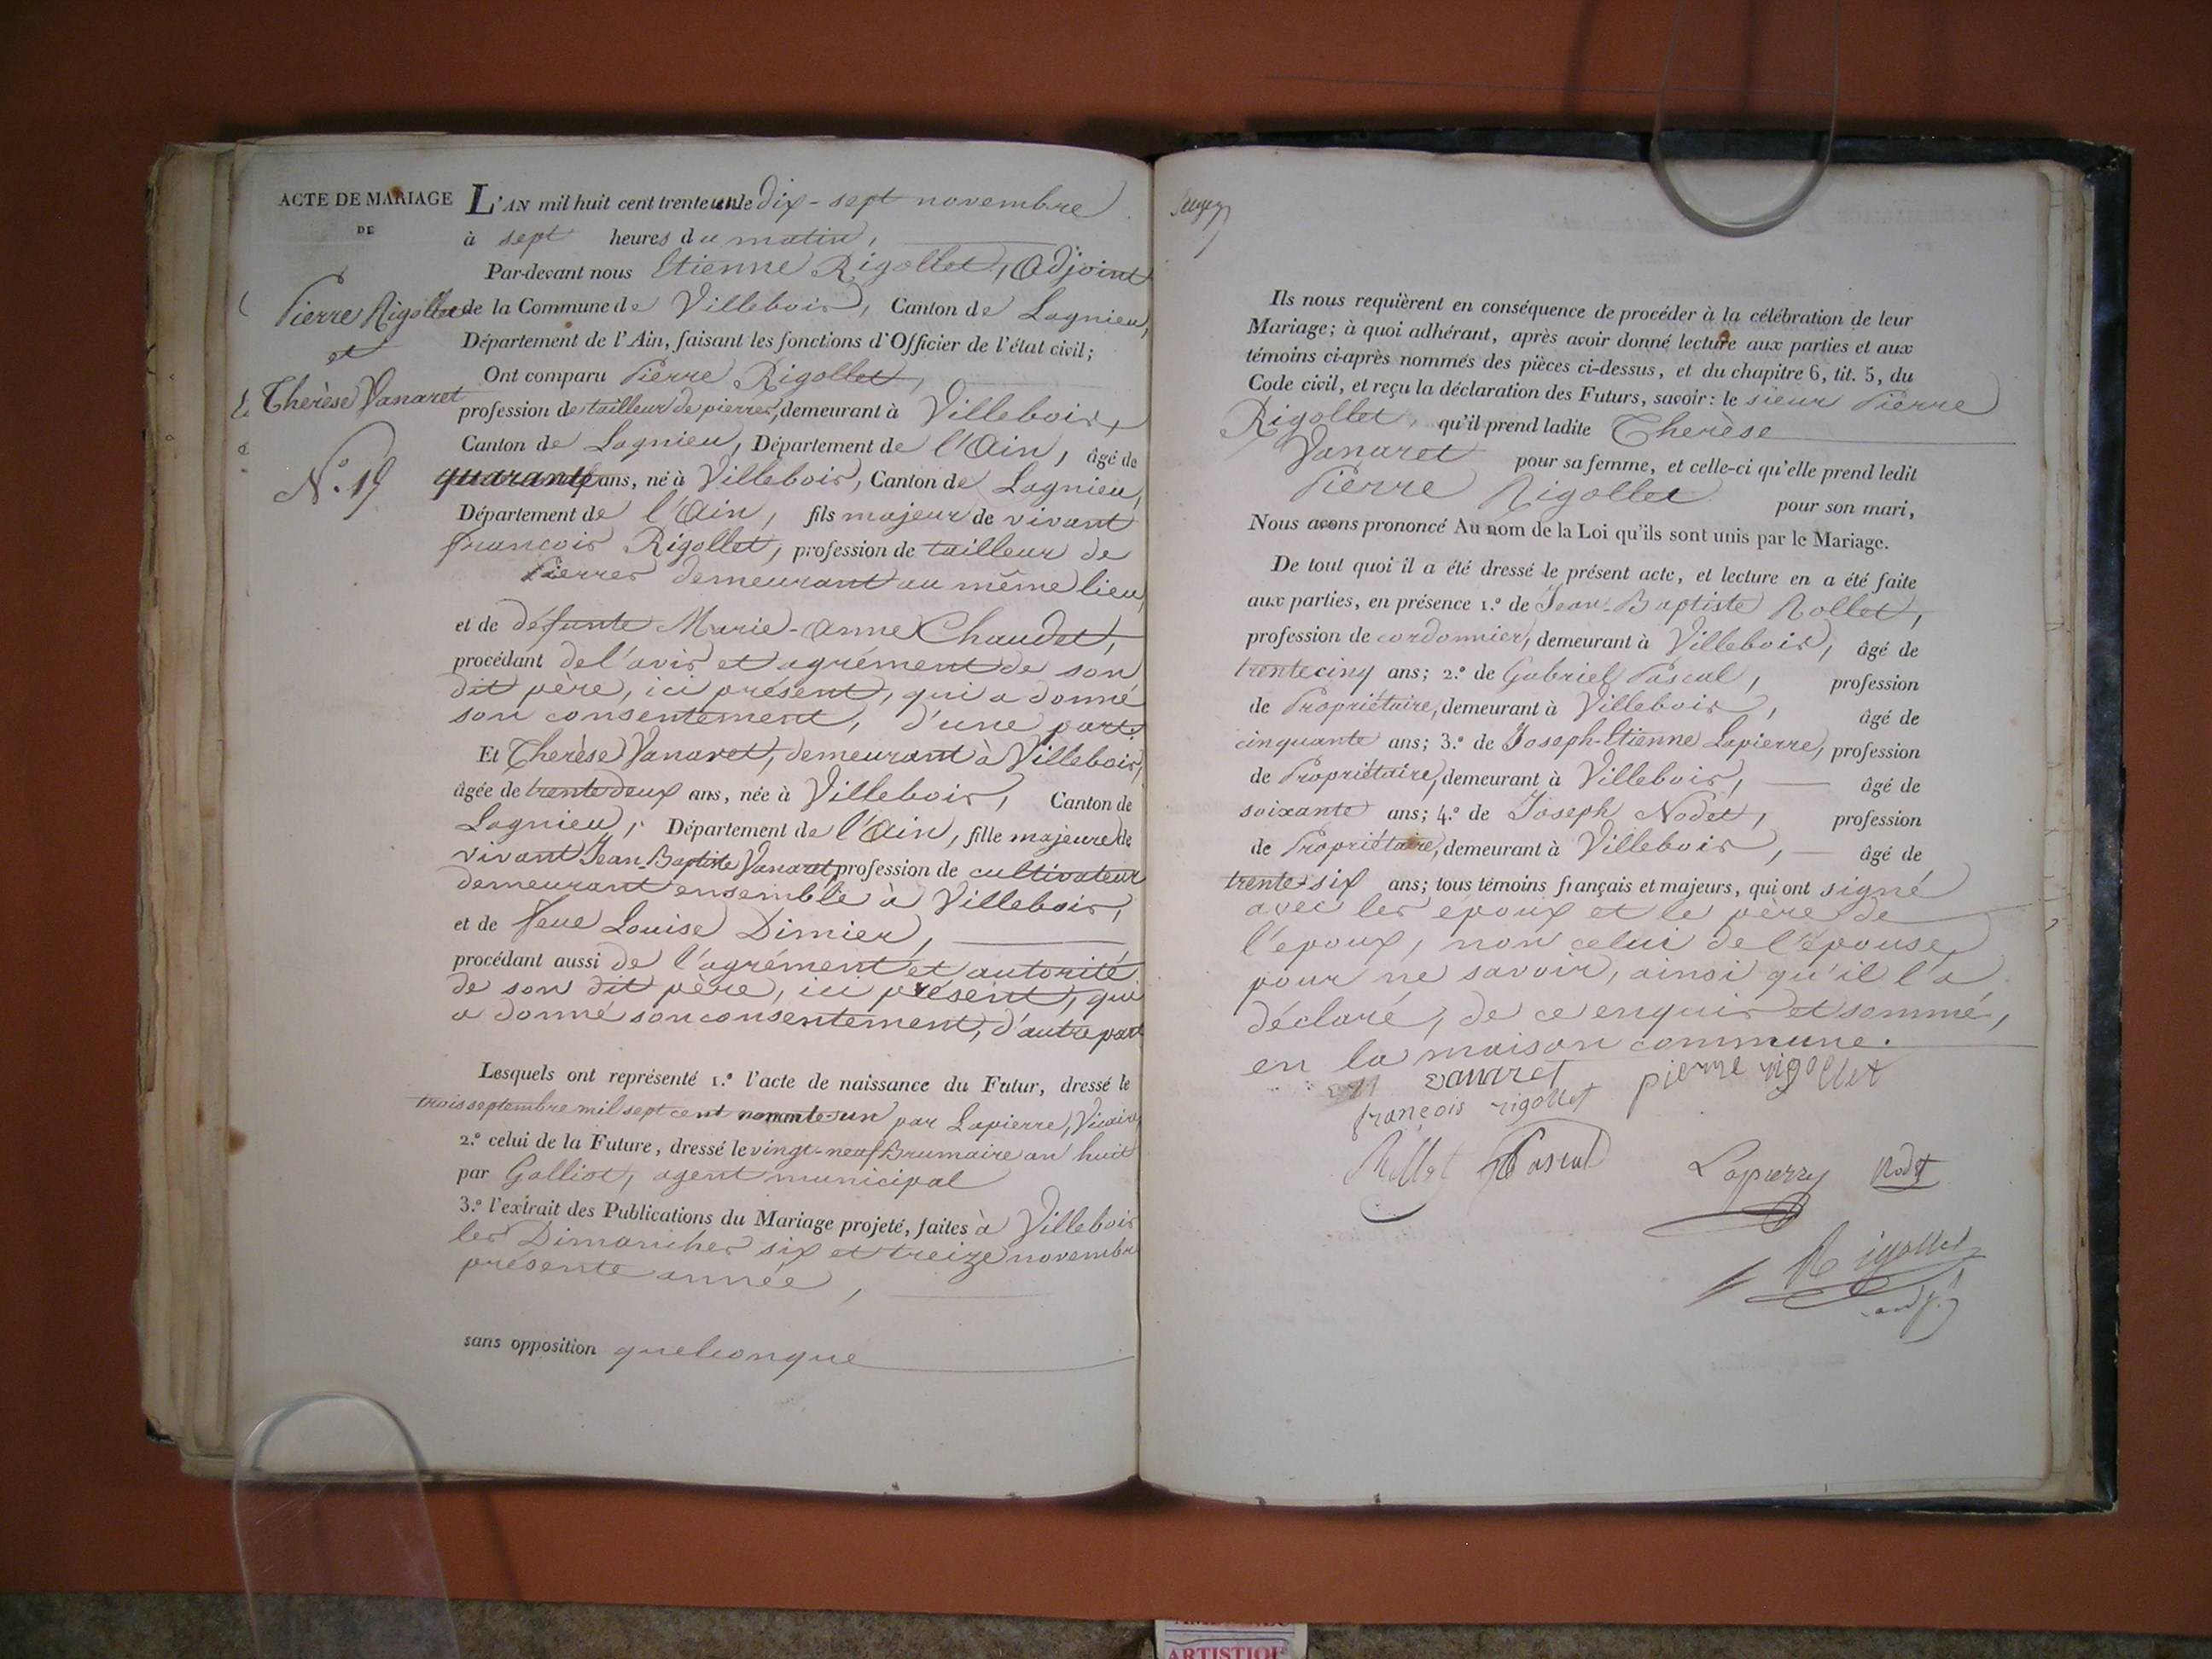 ACTE DE MARIAGE
DE
Pierre Rigollet
et
Therèse Vanaret
N.º 19
L'AN mil huit cent trente un le dix-sept novembre
à sept heures du matin,
Par-devant nous Etienne Rigollet, Adjoint
de la Commune de Villebois, Canton de Lagnieu,
Département de l'Ain, faisant les fonctions d'Officier de l'état civil;
Ont comparu Pierre Rigollet,
profession de tailleur de pierres, demeurant à Villebois,
Canton de Lagnieu, Département de l'Ain, âgé de
quarante ans, né à Villebois, Canton de Lagnieu,
Département de l'Ain, fils majeur de vivant
françois Rigollet, profession de tailleur de
Pierres demeurant au même lieu,
et de défunte Marie-Anne Chaudet,
procédant de l'avis et agrément de son
dit père, ici présent, qui a donné
son consentement, d'une part.
Et Therèse Vanaret, demeurant à Villebois,
âgée de trente deux ans, née à Villebois, Canton de
Lagnieu, Département de l'Ain, fille majeure de
vivant Jean-Baptiste Vanaret, profession de cultivateur
demeurant ensemble à Villebois,
et de feue Louise Dimier,
procédant aussi de l'agrément et autorité
de son dit père, ici présent, qui
a donné son consentement, d'autre part
Lesquels ont représenté 1.º l'acte de naissance du Futur, dressé le
trois septembre mil sept cent nonante-un par Lapierre, Vicaire
2.º celui de la Future, dressé le vingt-neuf Brumaire an huit
par Galliot, agent municipal
3.º l'extrait des Publications du Mariage projeté, faites à Villebois
les Dimanches six et treize novembre
présente année,
sans opposition quelconque
Ils nous requièrent en conséquence de procéder à la célébration de leur
Mariage; à quoi adhérant, après avoir donné lecture aux parties et aux
témoins ci-après nommés des pièces ci-dessus, et du chapitre 6, tit. 5, du
Code civil, et reçu la déclaration des Futurs, savoir: le sieur Pierre
Rigollet, qu'il prend ladite Therèse
Vanaret pour sa femme, et celle-ci qu'elle prend ledit
Pierre Rigollet pour son mari,
Nous avons prononcé Au nom de la Loi qu'ils sont unis par le Mariage.
De tout quoi il a été dressé le présent acte, et lecture en a été faite
aux parties, en présence 1.º de Jean-Baptiste Rollet,
profession de cordonnier, demeurant à Villebois, âgé de
trente cinq ans; 2.º de Gabriel Pascal, profession
de Propriétaire, demeurant à Villebois, âgé de
cinquante ans; 3.º de Joseph-Etienne Lapierre, profession
de Propriétaire, demeurant à Villebois, âgé de
soixante ans; 4.º de Joseph Nodet, profession
de Propriétaire, demeurant à Villebois, âgé de
trente-six ans; tous témoins français et majeurs, qui ont signé
avec les époux et le père de
l'époux, non celui de l'épouse,
pour ne savoir, ainsi qu'il l'a
déclaré, de ce enquis et sommé,
en la maison commune.
vanaret pierre rigollet
françois rigollet
Rollet Pascal Lapierre Nodet
Rigollet
adj.
ARTISTIQUE